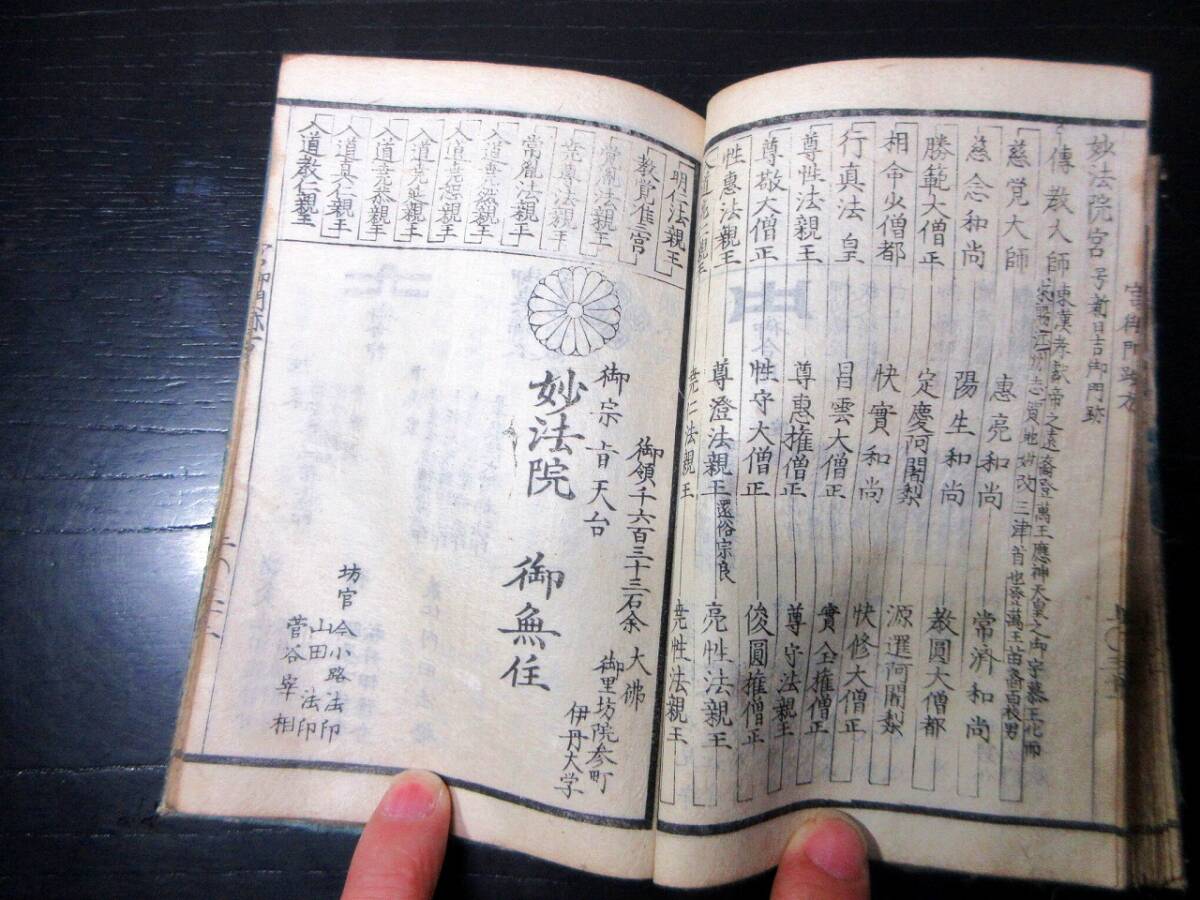 妙法院宮 号新日吉御門跡
傳教大師
慈覚大師
惠亮和尚
常済和尚
慈念和尚
陽生和尚
教圓大僧都
勝範大僧正
定慶阿闍梨
源暹阿闍梨
相命少僧都
快實和尚
快修大僧正
行真法皇
昌雲大僧正
實全権僧正
尊性法親王
尊惠権僧正
尊守法親王
尊敬大僧正
性守大僧正
俊圓権僧正
性惠法親王
尊澄法親王 還俗宗良
亮性法親王
堯仁法親王
堯性法親王
明仁法親王
教覚准三宮
覚胤法親王
堯尊法親王
常胤法親王
入道堯然親王
入道堯恕親王
入道堯延親王
入道堯恭親王
入道真仁親王
入道教仁親王
御領千六百三十三石余 大佛
御宗旨天台
御里坊院参町
伊丹大学
妙法院 御無住
坊官 今小路法印
山田法印
菅谷宰相